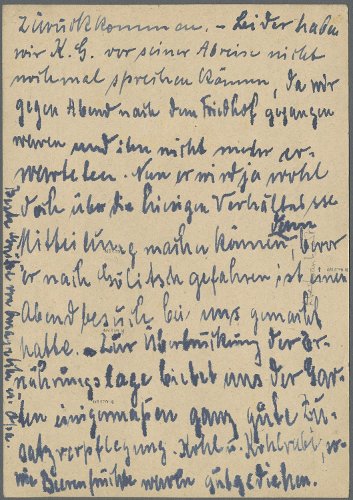 Zurückkommen. – Leider haben
wir K. G. vor seiner Abreise nicht
nochmal sprechen können, da wir
gegen Abend nach dem Friedhof gegangen
waren und ihn nicht mehr er-
warteten. Nun er wird ja wohl
doch über die hiesigen Verhältnisse
Mitteilung machen können, denn bevor
er nach gefahren ist einen
Abendbesuch bei uns gemacht
hatte. – Zur Überbrückung der Er-
nährungslage bietet uns der Gar-
ten einigermaßen ganz gute Zu-
satzverpflegung. Kohl u. Kohlrabi so-
wie Beerenfrüchte waren gutgediehen.
Beste Grüße von u. Opa.